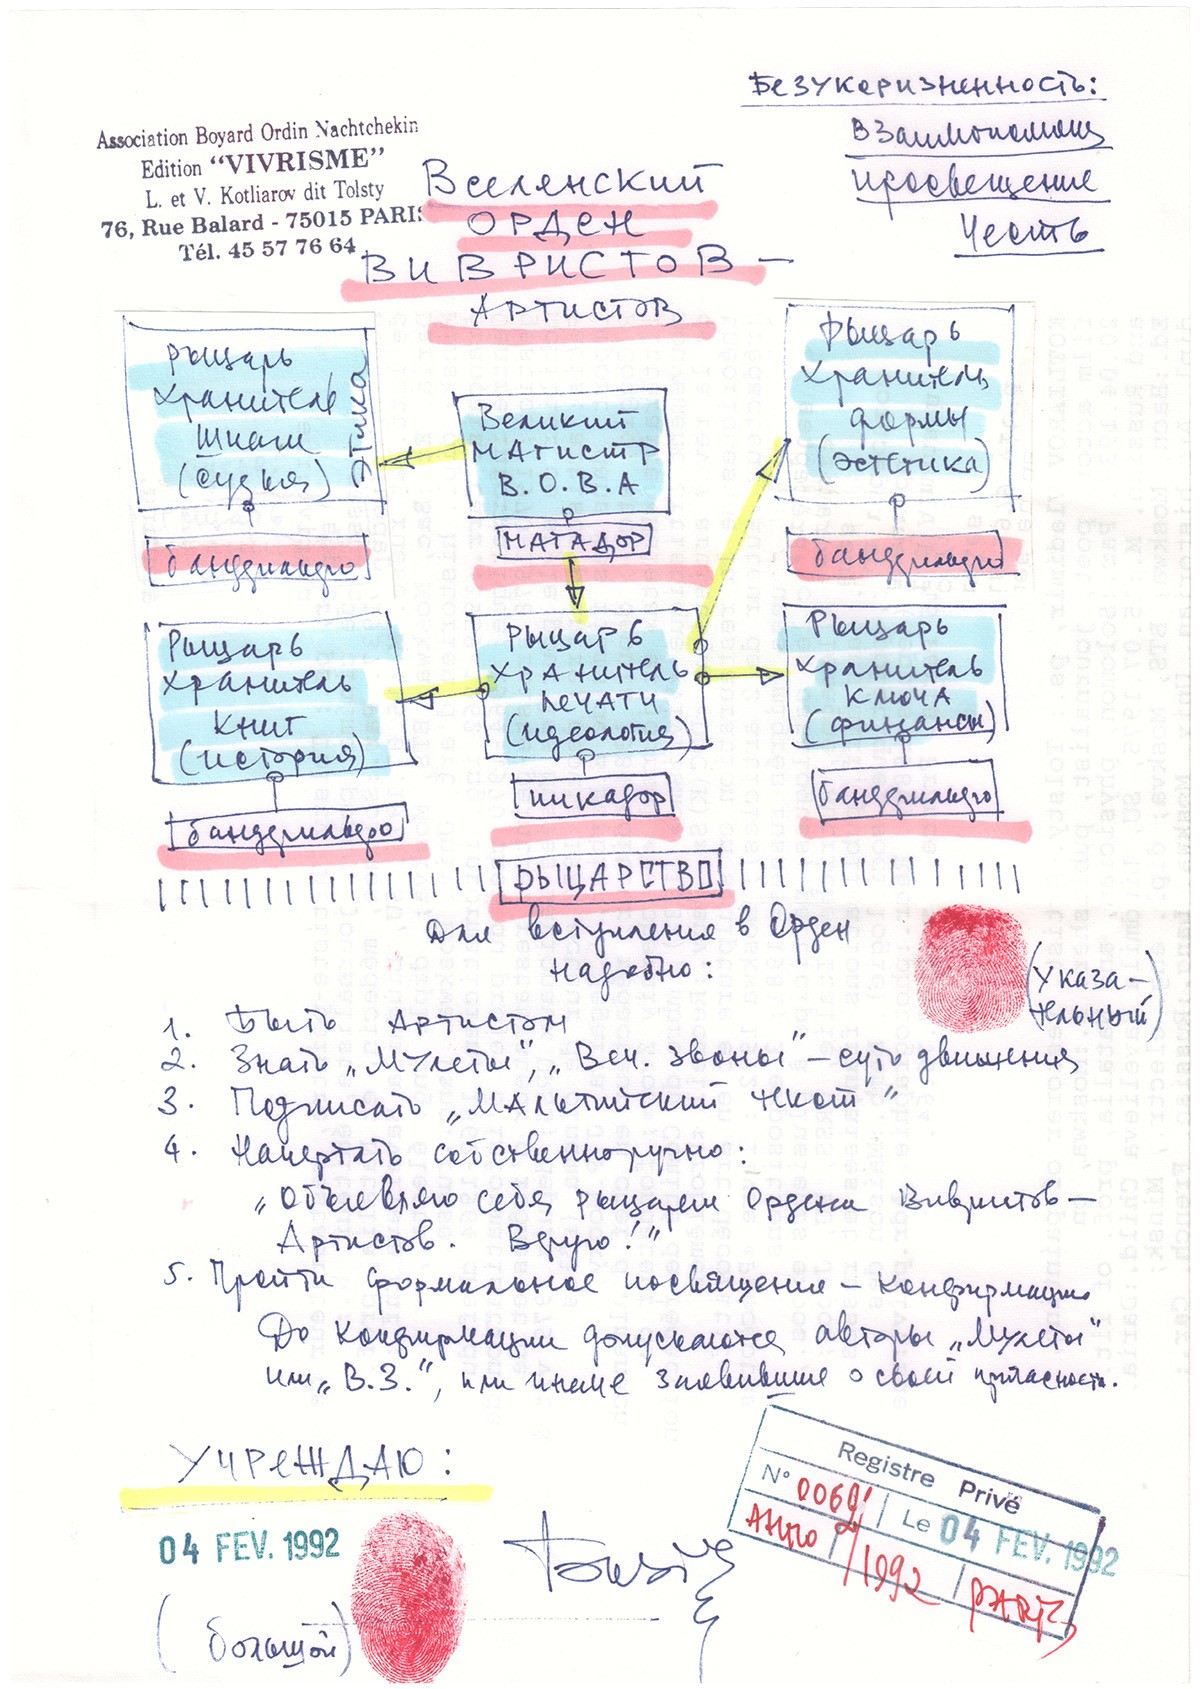 Безукоризненность:
Взаимопомощь
просвещение
Честь
Association Boyard Ordin Nachtchekin
Edition "VIVRISME"
L. et V. Kotliarov dit Tolsty
76, Rue Balard - 75015 PARIS
Tél. 45 57 76 64
Вселенский
ОРДЕН
ВИВРИСТОВ –
Артистов
Рыцарь
хранитель
шпаги
(судья)
ЭТИКА
бандрильеро
Великий
Магистр
В.О.В.А
МАТАДОР
Рыцарь
хранитель
формы
(эстетика)
бандрильеро
Рыцарь
хранитель
книг
(история)
бандрильеро
Рыцарь
хранитель
печати
(идеология)
пикадор
Рыцарь
хранитель
ключа
(финансы)
бандрильеро
РЫЦАРСТВО
Для вступления в Орден
надобно:
(указа-
тельный)
1. Быть Артистом
2. Знать „Мулеты", „Веч. Звоны" – суть движения
3. Подписать „Мальтийский"
4. Начертать собственноручно:
„Объявляю себя рыцарем Ордена Вивристов –
Артистов. Верую!"
5. Пройти формальное посвящение – конфирмацию
До конфирмации допускаются авторы „Мулеты"
или „В.З.", или иначе заявившие о своей
УЧРЕЖДАЮ:
04 FEV. 1992
(большой)
Registre Privé
N° Le 04 FEV. 1992
/1992